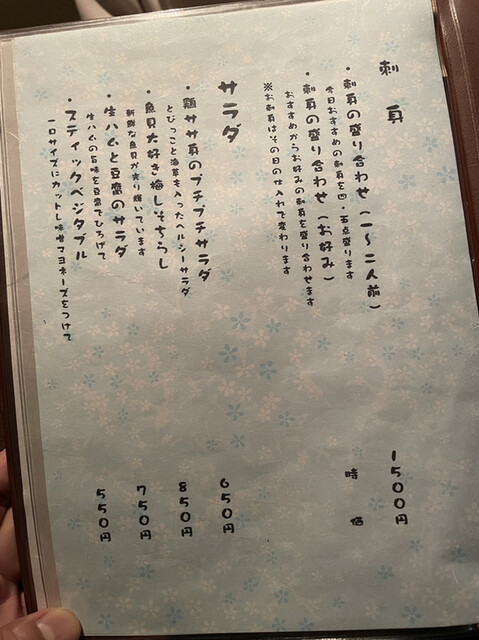 刺身
・刺身の盛り合わせ（一～二人前）
1500円
今日おすすめの刺身を四・五点盛ります
・刺身の盛り合わせ（お好み）
時価
おすすめからお好みの刺身を盛り合わせます
※お刺身はその日の仕入れで変わります
サラダ
・鶏ササ身のプチプチサラダ
650円
とびっこと海草を入ったヘルシーサラダ
・魚貝大好き梅しそちらし
850円
新鮮な魚貝が光り輝いています
・生ハムと豆腐のサラダ
750円
生ハムの旨味を豆腐でひろげて
・スティックベジタブル
550円
一口サイズにカットし味噌マヨネーズをつけて